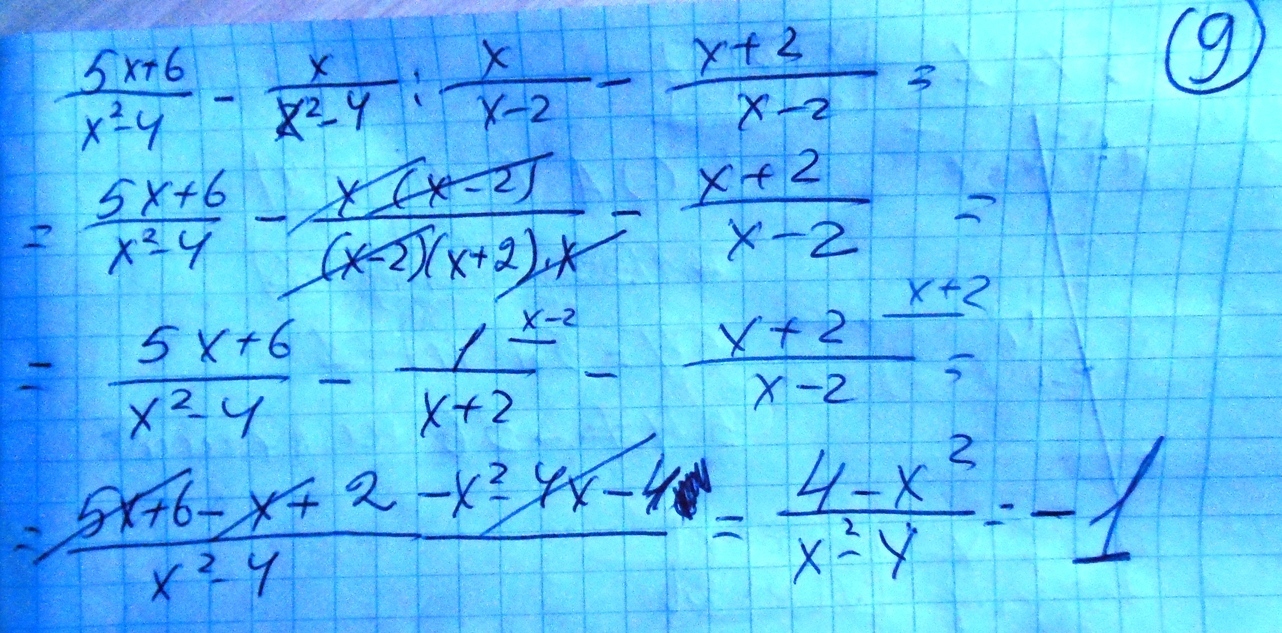 (5x+6)/(x²-4) - x/(x²-4) : x/(x-2) - (x+2)/(x-2) = 9
= (5x+6)/(x²-4) - x(x-2)/((x-2)(x+2)·x) - (x+2)/(x-2) =
= (5x+6)/(x²-4) - 1/(x+2) x-2 - (x+2)/(x-2) x+2 =
= (5x+6-x+2-x²-4x-4)/(x²-4) = (4-x²)/(x²-4) = -1